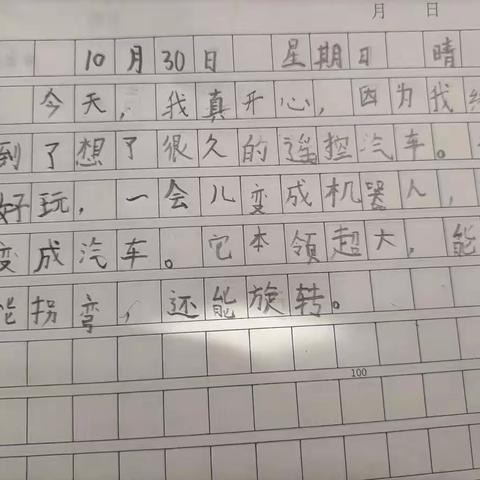 月 日
10月30日 星期日 晴
今天，我真开心，因为我终
到了想了很久的遥控汽车。
好玩，一会儿变成机器人，
变成汽车。它本领超大，能
能拐弯，还能旋转。
100